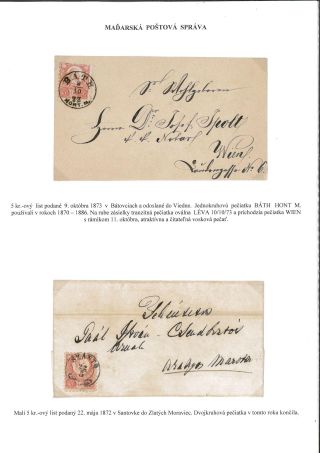 MAĎARSKÁ POŠTOVÁ SPRÁVA
BÁTH
HONT M.
Herrn Dr. Josef Spott
k. k. Notar
Wien
No 6.
5 kr.-ový list podané 9. októbra 1873 v Bátovciach a odoslané do Viedne. Jednokruhová pečiatka BÁTH HONT M.
používali v rokoch 1870 – 1886. Na rube zásielky tranzitná pečiatka oválna LÉVA 10/10/73 a príchodzia pečiatka WIEN
s rámikom 11. októbra, atraktívna a čitateľná vosková pečať.
Paál István
Aranyos Maróth
Malí 5 kr.-ový list podaný 22. mája 1872 v Santovke do Zlatých Moraviec. Dvojkruhová pečiatka v tomto roku končila.